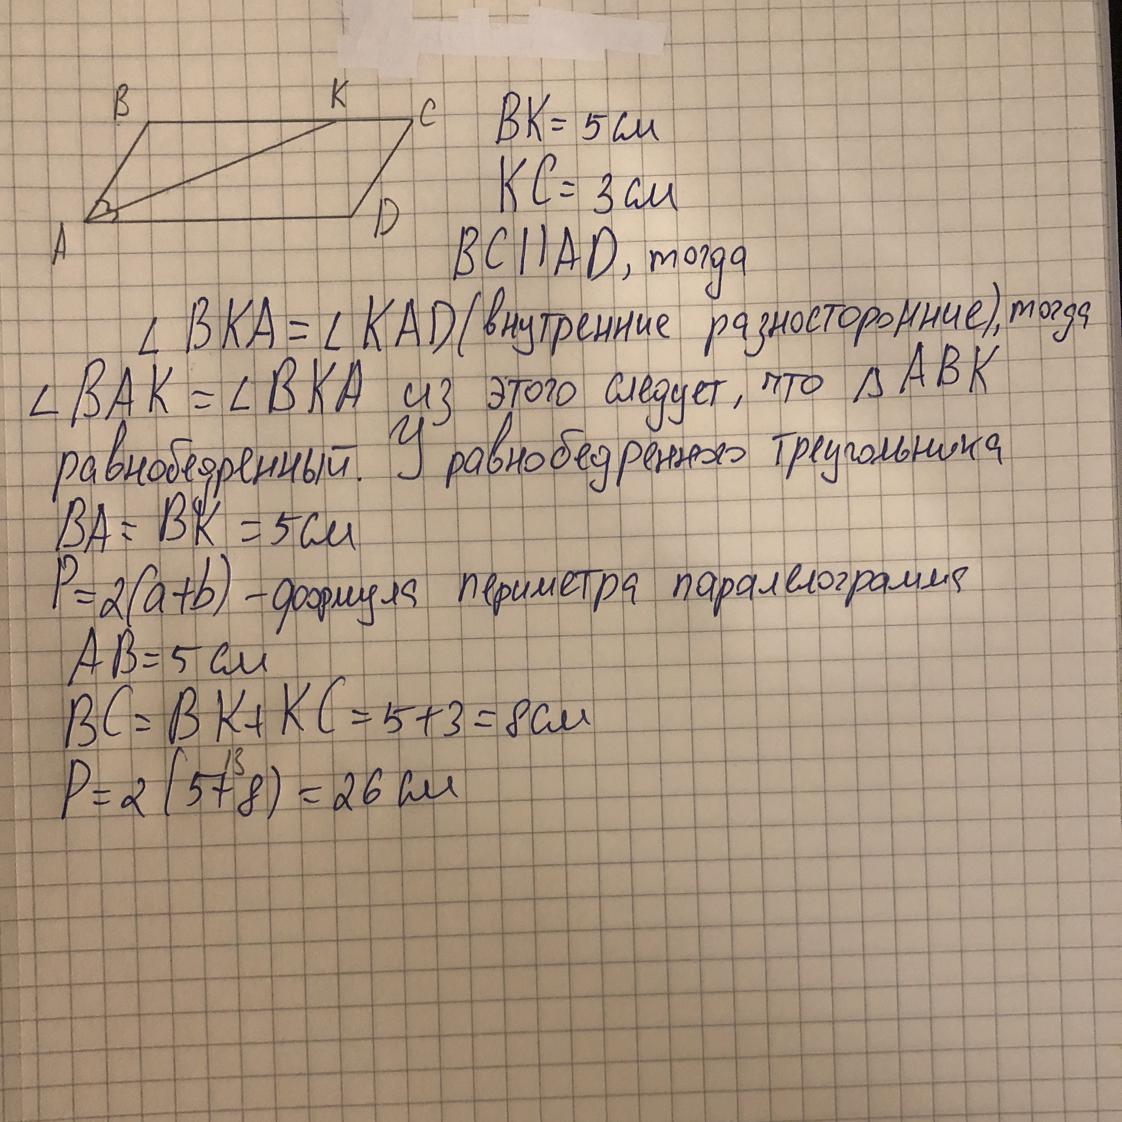 B K C
A D
BK = 5 см
KC = 3 см
BC || AD, тогда
∠ BKA = ∠ KAD (внутренние разносторонние), тогда
∠ BAK = ∠ BKA из этого следует, что △ ABK
равнобедренный. У равнобедренного треугольника
BA = BK = 5 см
P = 2(a+b) - формула периметра паралелограмма
AB = 5 см
BC = BK + KC = 5 + 3 = 8 см
13
P = 2 (5+8) = 26 см